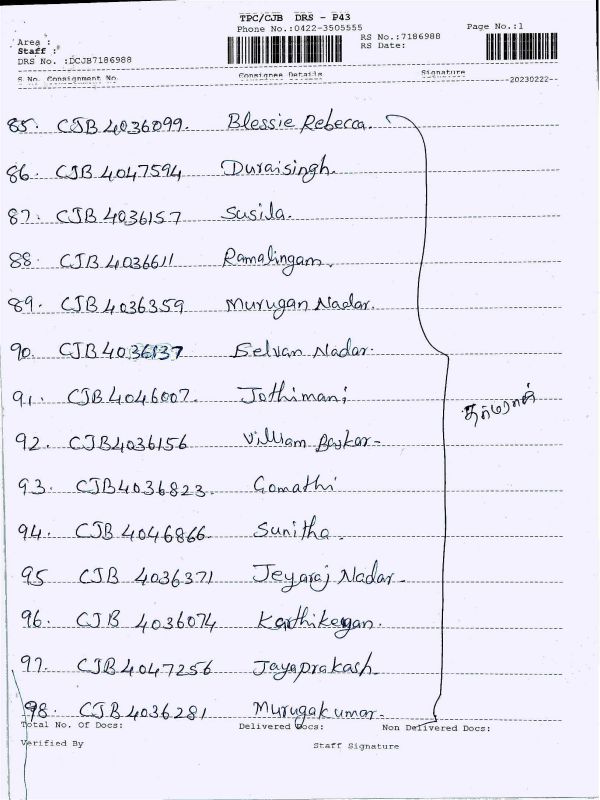 TPC/CJB DRS - P43
Phone No.:0422-3505555
Page No.:1
Area :
RS No.:7186988
Staff :
RS Date:
DRS No. :DCJB7186988
S No. Consignment No
Consignee Details
Signature
20230222
85. CJB 4036099. Blessie Rebecca.
86. CJB 4047594 Duraisingh.
87. CJB 4036157 Susila.
88. CJB 4036611 Ramalingam.
89. CJB 4036359 Murugan Nadar.
90. CJB 4036137 Selvan Nadar.
91. CJB 4046007. Jothimani
92. CJB4036156 Villiam Baskar-
93. CJB4036823. Gomathi
94. CJB 4046866 Sunitha.
95 CJB 4036371 Jeyaraj Nadar-
96. CJB 4036074 Karthikeyan.
97. CJB 4047256 Jayaprakash.
98. CJB 4036281 Murugakumar.
Total No. Of Docs:
Delivered Docs:
Non Delivered Docs:
Verified By
Staff Signature